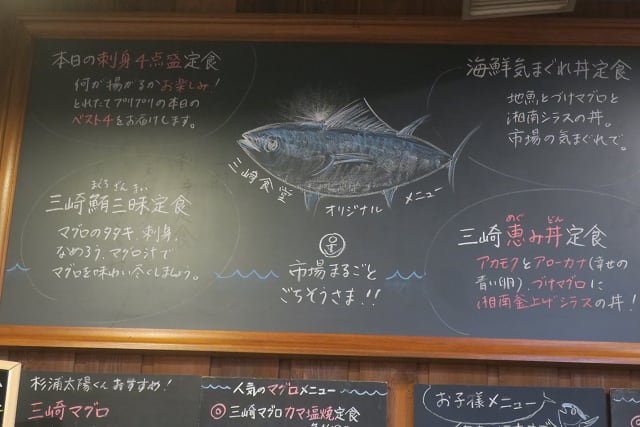 本日の刺身4点盛定食
何が揚がるかお楽しみ!
とれたてプリプリの本日の
ベスト4をお届けします。
海鮮気まぐれ丼定食
地魚とづけマグロと
湘南シラスの丼。
市場の気まぐれで。
三崎食堂
オリジナル
メニュー
まぐろ ざんまい
三崎鮪三昧定食
マグロのタタキ、刺身、
なめろう、マグロ汁で
マグロを味わい尽くしましょう。
市場まるごと
ごちそうさま!!
めぐ どん
三崎恵み丼定食
アカモクとアローカナ(幸せの
青い卵)、づけマグロに
湘南釜上げシラスの丼!
杉浦太陽くんおすすめ!
三崎マグロ
人気のマグロメニュー
◎三崎マグロカマ塩焼定食
お子様メニュー